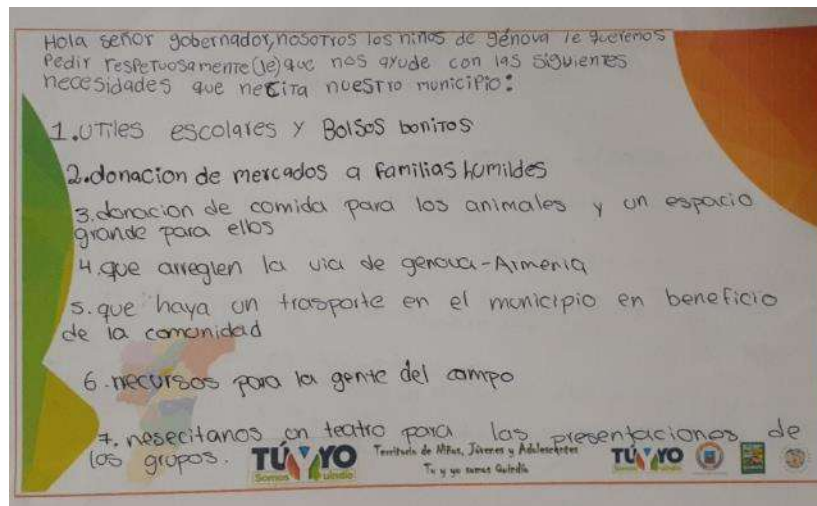 Hola señor gobernador, nosotros los niños de génova le queremos
Pedir respetuosamente (le) que nos ayude con las siguientes
necesidades que necita nuestro municipio:
1. utiles escolares y Bolsos bonitos
2. donacion de mercados a familias humildes
3. donacion de comida para los animales y un espacio
grande para ellos
4. que arreglen la via de genova-Armenia
5. que haya un trasporte en el municipio en beneficio
de la comunidad
6. recursos para la gente del campo
7. nesecitanos un teatro para las presentaciones de
los grupos.
TÚ Y YO
Somos Quindío
Territorio de Niños, Jóvenes y Adolescentes
Tu y yo somos Quindío
TÚ Y YO